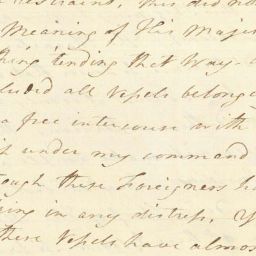 restraint, this did no
Meaning of His Maje
thing tending that Way
all Vessels belong
a free intercourse with
under my command
these Foreigners h
in any distress,
these Vessels have almos